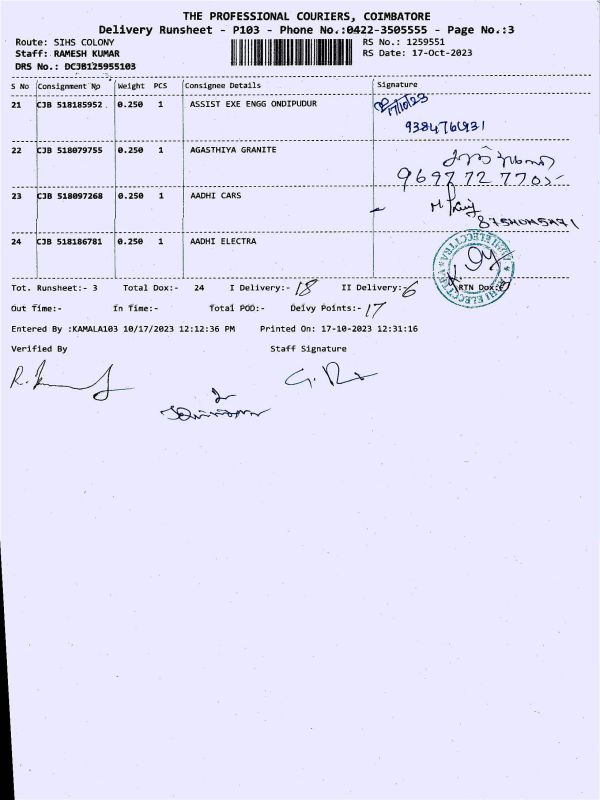 THE PROFESSIONAL COURIERS, COIMBATORE
Delivery Runsheet - P103 - Phone No.:0422-3505555 - Page No.:3
Route: SIHS COLONY RS No.: 1259551
Staff: RAMESH KUMAR RS Date: 17-Oct-2023
DRS No.: DCJB125955103
S No Consignment No Weight PCS Consignee Details Signature
21 CJB 518185952 0.250 1 ASSIST EXE ENGG ONDIPUDUR 17/10/23
22 CJB 518079755 0.250 1 AGASTHIYA GRANITE
9697727705
23 CJB 518097268 0.250 1 AADHI CARS
24 CJB 518186781 0.250 1 AADHI ELECTRA
Tot. Runsheet:- 3 Total Dox:- 24 I Delivery:- 18 II Delivery:- 6 RTN Dox:-
Out Time:- In Time:- Total POD:- Delvy Points:- 17
Entered By :KAMALA103 10/17/2023 12:12:36 PM Printed On: 17-10-2023 12:31:16
Verified By Staff Signature